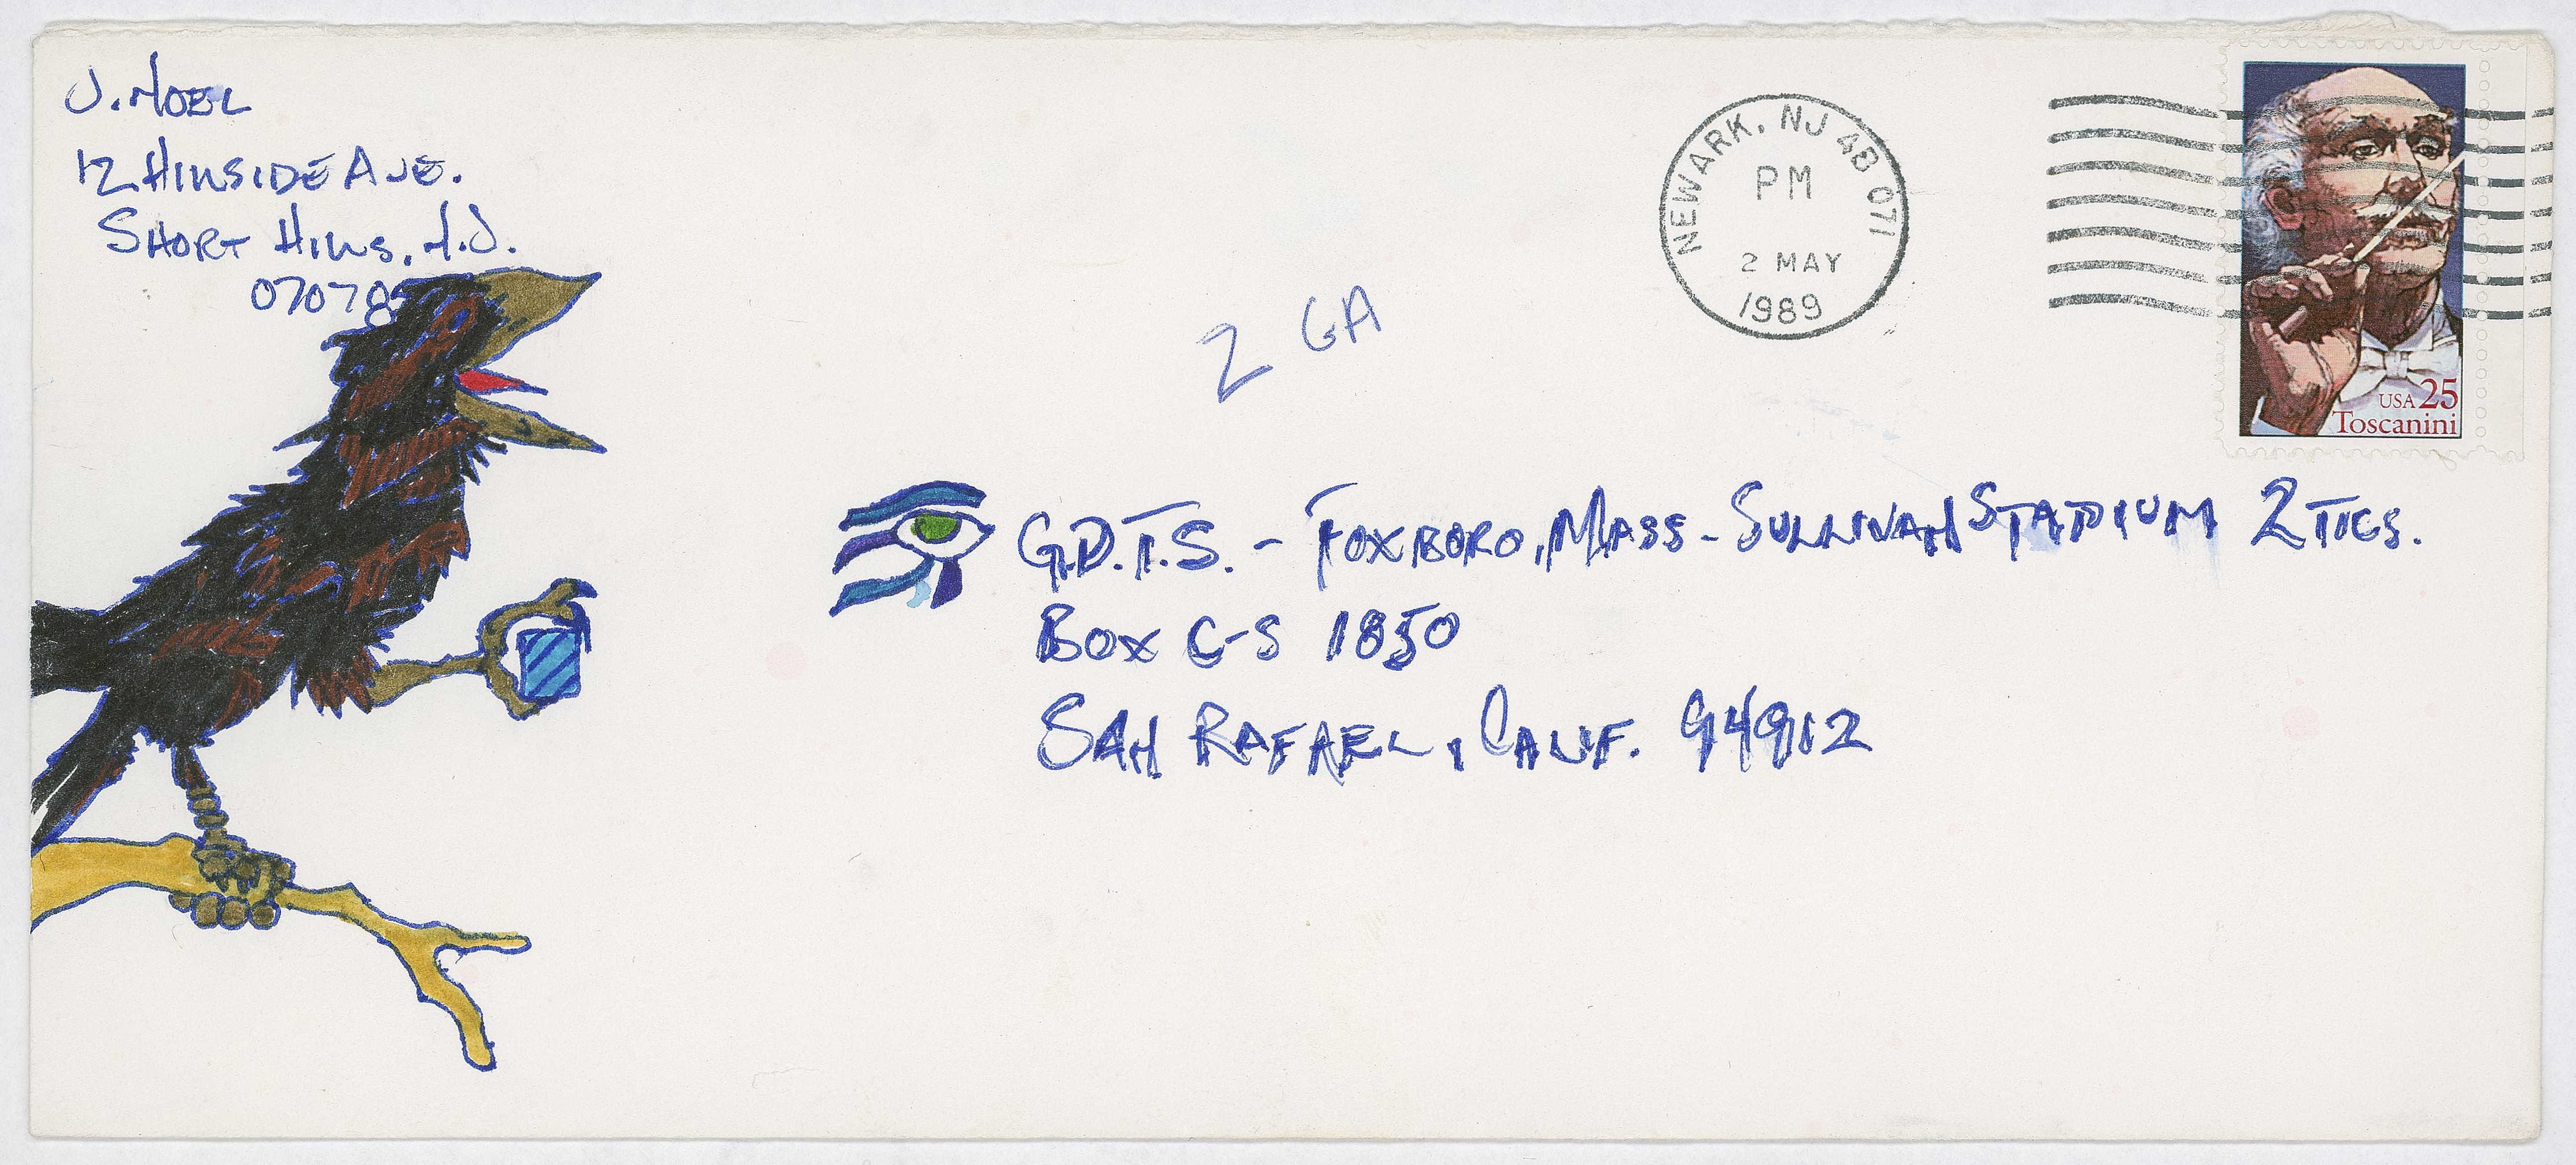 J. Noel
12 Hillside Ave.
Short Hills, N.J.
07078
2 GA
NEWARK, NJ AB 071
PM
2 MAY
1989
USA 25
Toscanini
G.D.T.S. - Foxboro, Mass - Sullivan Stadium 2 Tics.
Box C-S 1850
San Rafael, Calif. 94912